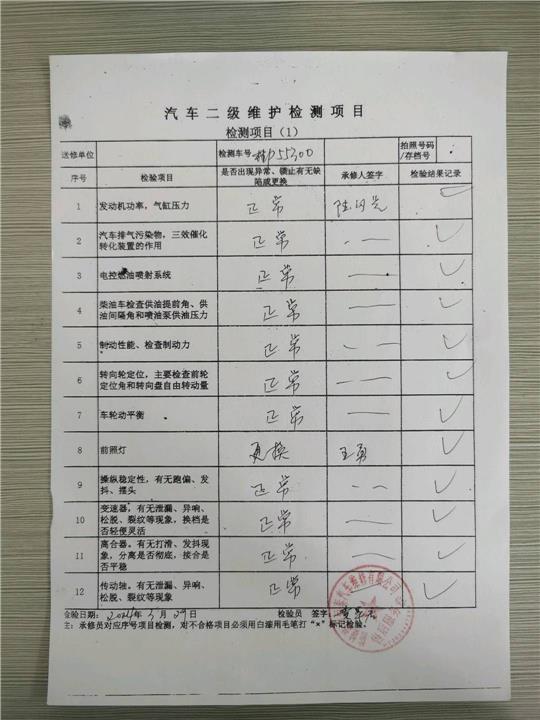 汽车二级维护检测项目
检测项目（1）
送修单位 检测车号 P55300 拍照号码/存档号
序号 检验项目 是否出现异常、锁止有无缺陷或更换 承修人签字 检验结果记录
1 发动机功率，气缸压力 正常 ✓
2 汽车排气污染物，三效催化 正常 ✓
转化装置的作用
3 电控燃油喷射系统 正常 ✓
4 柴油车检查供油提前角、供 正常 ✓
油间隔角和喷油泵供油压力
5 制动性能、检查制动力 正常 ✓
6 转向轮定位，主要检查前轮 正常 ✓
定位角和转向盘自由转动量
7 车轮动平衡 正常 ✓
8 前照灯 更换 王勇 ✓
9 操纵稳定性，有无跑偏、发 正常 ✓
抖、摆头
10 变速器，有无泄漏、异响、 正常 ✓
松脱、裂纹等现象，换档是
否轻便灵活
11 离合器。有无打滑、发抖现 正常 ✓
象，分离是否彻底，接合是
否平稳
12 传动轴。有无泄漏、异响、 正常 ✓
松脱、裂纹等现象
检验日期： 年 月 29日 检验员 签字：
注：承修员对应序号项目检测，对不合格项目必须用白漆用毛笔打“×”标记检验。